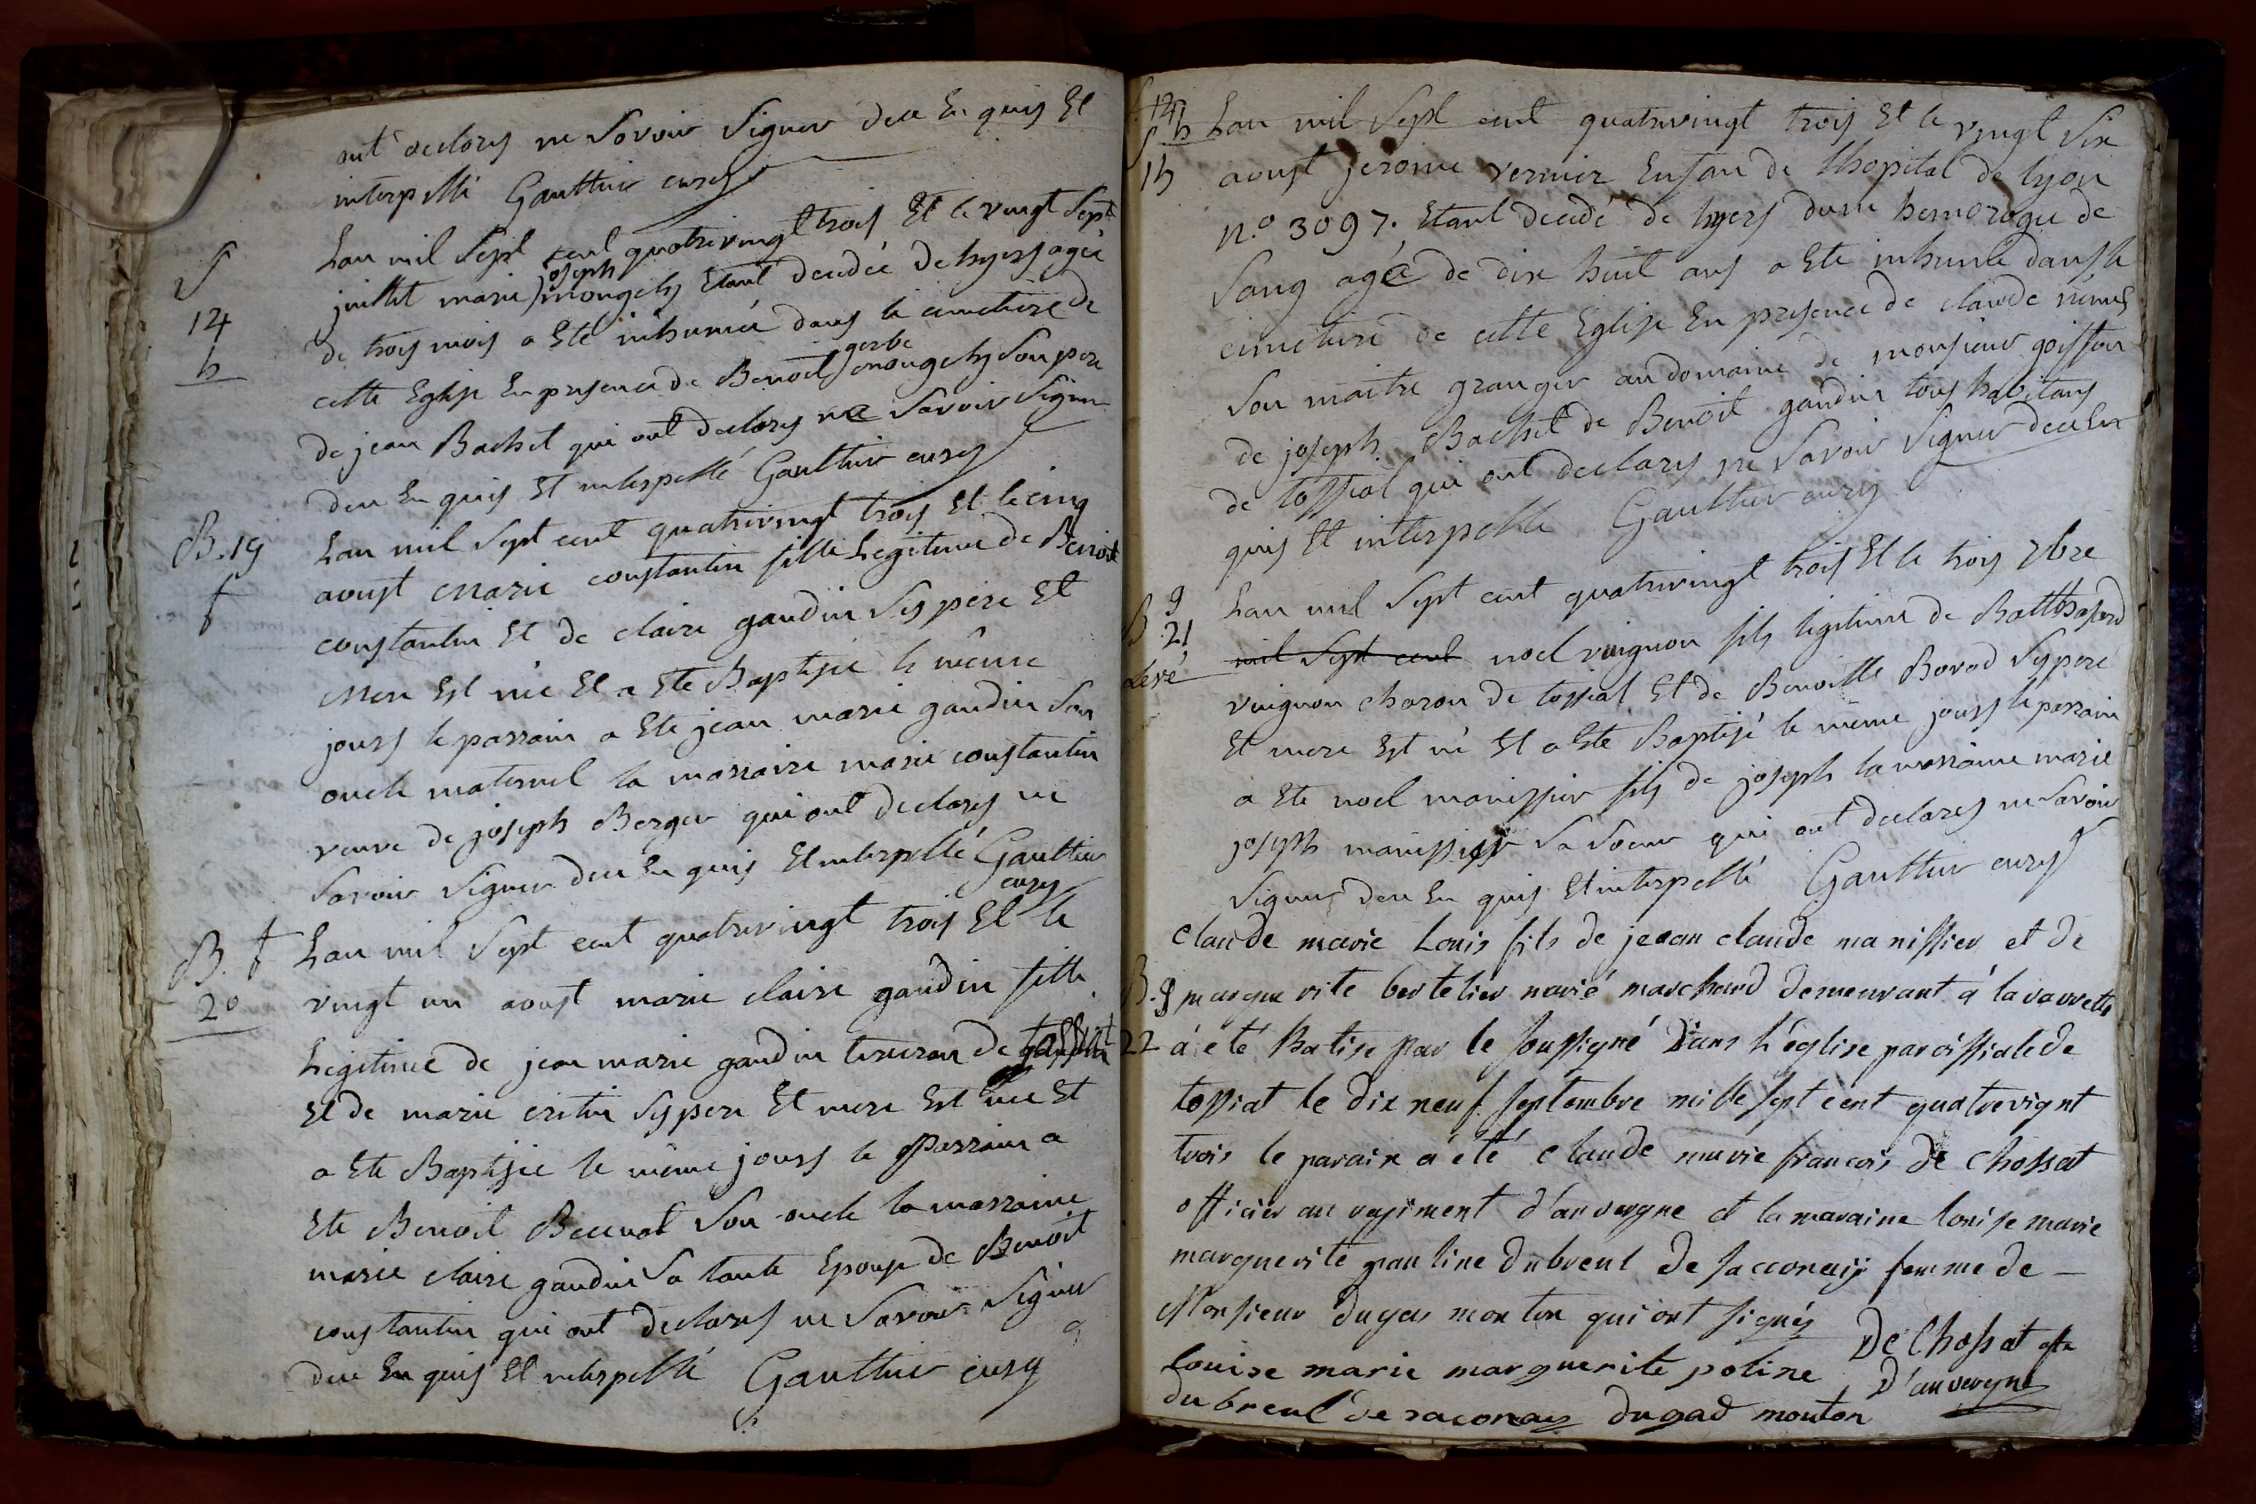 ont declarés ne Savoir Signer deu En quis Et
interpellé Gauttier curé
S
14
h
Lan mil Sept cent quatrevingt trois Et le vingt Sept
juillet marie joseph mongely Etant decedée de hyers agée
de trois mois a Eté inhumée dans le cimetiere de
cette Eglise En presence de Benoit gerbe mongely Son pere
de jean Bachet qui ont declarés ne Savoir Signer
deu En quis Et interpellé Gauttier curé
B. 19
f
Lan mil Sept cent quatrevingt trois Et le cinq
aoust Marie constantin fille Legitime de Benoit
constantin Et de claire gaudin Ses pere Et
Mere Est née Et a Eté Baptisée le même
jours le parrain a Eté jean marie gaudin Son
oncle maternel la marraine marie constantin
veuve de joseph Berger qui ont declarés ne
Savoir Signer deu En quis Et interpellé Gauttier
curé
B. f
20
Lan mil Sept cent quatrevingt trois Et le
vingt un aoust marie claire gaudin fille
Legitime de jean marie gaudin de tossiat
Et de marie cretin Ses pere Et mere Est née Et
a Eté Baptisée le même jours le Parrain a
Eté Benoit Son oncle la marraine
marie claire gaudin Sa tante Epouse de Benoit
constantin qui ont declarés ne Savoir Signer
deu En quis Et interpellé Gauttier curé
S
15
h
Lan mil Sept cent quatrevingt trois Et le vingt Six
aoust jerome vernier Enfan de l'hopital de lyon
N.o 3097. Etant decedé de hyers dune hemoragie de
Sang agé de dix huit ans a Eté inhumé dans le
cimetiere de cette Eglise En presence de claude
Son maitre granger au domaine de monsieur goiffon
de joseph Bachet de Benoit gaudin tous habitans
de tossiat qui ont declarés ne Savoir Signer deu En
quis Et interpellé Gauttier curé
B 9
21
Levé
Lan mil Sept cent quatrevingt trois Et le trois 7bre
mil Sept cent noel vuignon fils legitime de Balthasard
vuignon charon de tossiat Et de Benoitte Borod Ses pere
Et mere Est né Et a Eté Baptisé le même jours le parrain
a Eté noel manissier fils de joseph la marraine marie
joseph manissier Sa Soeur qui ont declarés ne Savoir
Signer deu En quis Et interpellé Gauttier curé
B. g
22
claude marie Louis fils de jeean claude manissier et de
margue rite bertelier marié marchand demeurant à la vavrette
à été Batise par le soussigné Dans l'église paroissiale de
tossiat le dix neuf septembre mille sept cent quatrevignt
trois le parain a été claude marie francois de chossat
officier au regiment d'auvergne et la maraine louise marie
marguerite pauline dubreul de sacconay femme de –
Monsieur dugas monton qui ont signés
De Chossat offer
d'auvergne
louise marie marguerite poline
du breul de saconay dugad mouton